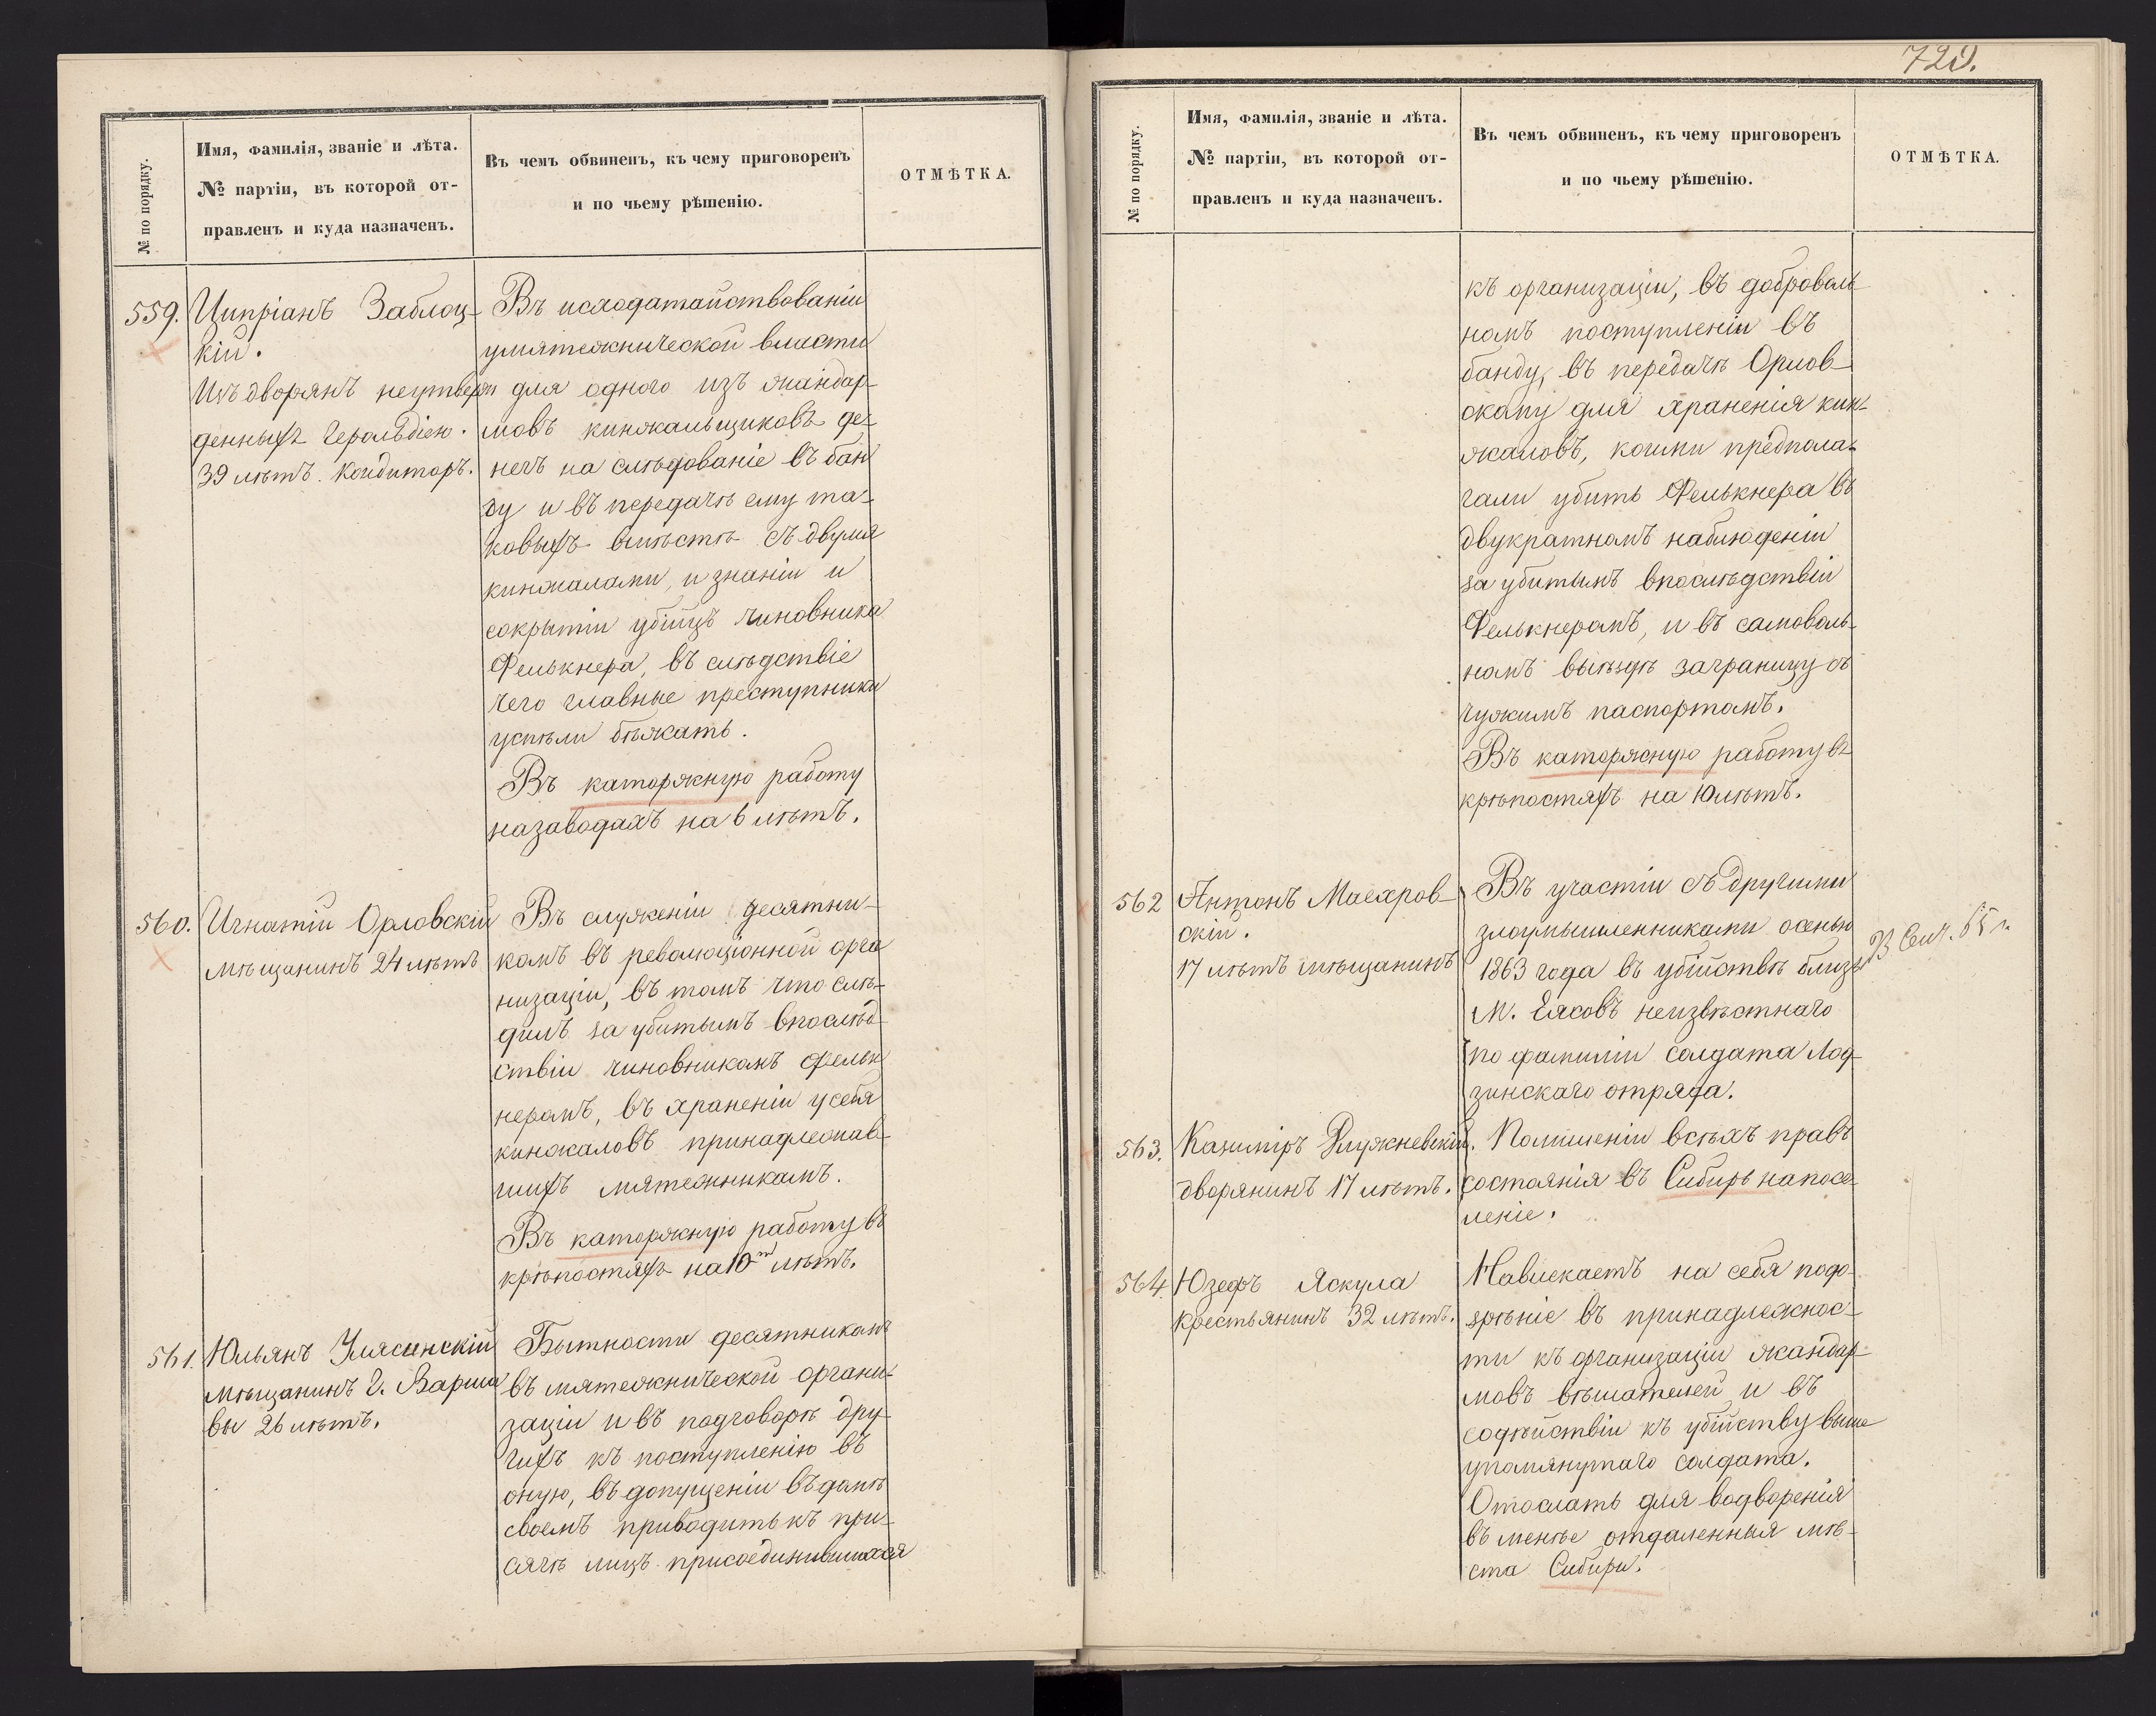 № по порядку.
Имя, фамилія, званіе и лѣта.
№ партіи, въ которой от-
правленъ и куда назначенъ.
Въ чемъ обвиненъ, къ чему приговоренъ
и по чьему рѣшенію.
ОТМѢТКА.
559.
Ципріанъ Заблоц-
кій.
Изъ дворянъ неутверж
денныхъ Герольдіею.
39 лѣтъ. Кондиторъ.
Въ исходатайствованіи
умятежнической власти
для одного изъ жандар-
мовъ кинжальщиковъ де-
негъ на слѣдованіе въ бан
ду и въ передачѣ ему та-
ковыхъ вмѣстѣ съ двумя
кинжалами, и знаніи и
сокрытіи убійцъ чиновника
Фелькнера, въ слѣдствіе
чего главные преступники
успѣли бѣжать.
Въ каторжную работу
назаводахъ на 6 лѣтъ.
560.
Игнатій Орловскій
мѣщанинъ 24 лѣтъ
Въ служеніи десятни-
комъ въ революціонной орга
низаціи, въ томъ что слѣ-
дилъ за убитымъ впослѣд-
ствіи чиновникомъ Фельк
неромъ, въ храненіи у себя
кинжаловъ принадлежав-
шихъ мятежникамъ.
Въ каторжную работу въ
крѣпостяхъ на 10т лѣтъ.
561.
Юльянъ Улясинскій
мѣщанинъ г. Варша
вы 26 лѣтъ.
Бытности десятникомъ
въ мятежнической органи-
заціи и въ подговорѣ дру-
гихъ къ поступленію въ
оную, въ допущеніи въ домѣ
своемъ приводить къ при-
сягѣ лицъ присоединившихся
729.
№ по порядку.
Имя, фамилія, званіе и лѣта.
№ партіи, въ которой от-
правленъ и куда назначенъ.
Въ чемъ обвиненъ, къ чему приговоренъ
и по чьему рѣшенію.
ОТМѢТКА.
къ организаціи, въ доброволь-
номъ поступленіи въ
банду, въ передачѣ Орлов-
скому для храненія кин-
жаловъ, коими предпола-
гали убить Фелькнера въ
двукратномъ наблюденіи
за убитымъ впослѣдствіи
Фелькнеромъ, и въ самоволь-
номъ выѣздѣ заграницу съ
чужимъ паспортомъ.
Въ каторжную работу въ
крѣпостяхъ на 10 лѣтъ.
562
Антонъ Маехров-
скій.
17 лѣтъ мѣщанинъ
Въ участіи съ другими
злоумышленниками осенью
1863 года въ убійствѣ близь
М. Ежовъ неизвѣстнаго
по фамиліи солдата Лод-
зинскаго отряда.
23 Сент. 65 г.
563.
Казиміръ Ружневскій.
дворянинъ 17 лѣтъ.
Полишеніи всѣхъ правъ
состоянія въ Сибирь на посе-
леніе.
564.
Юзефъ Яскула
крестьянинъ 32 лѣтъ.
Навлекаетъ на себя подо-
зрѣніе въ принадлежнос-
ти къ организаціи жандар-
мовъ вѣшателей и въ
содѣйствіи къ убійству выше
упомянутаго солдата.
Отослать для водворенія
въ менѣе отдаленныя мѣ-
ста Сибири.